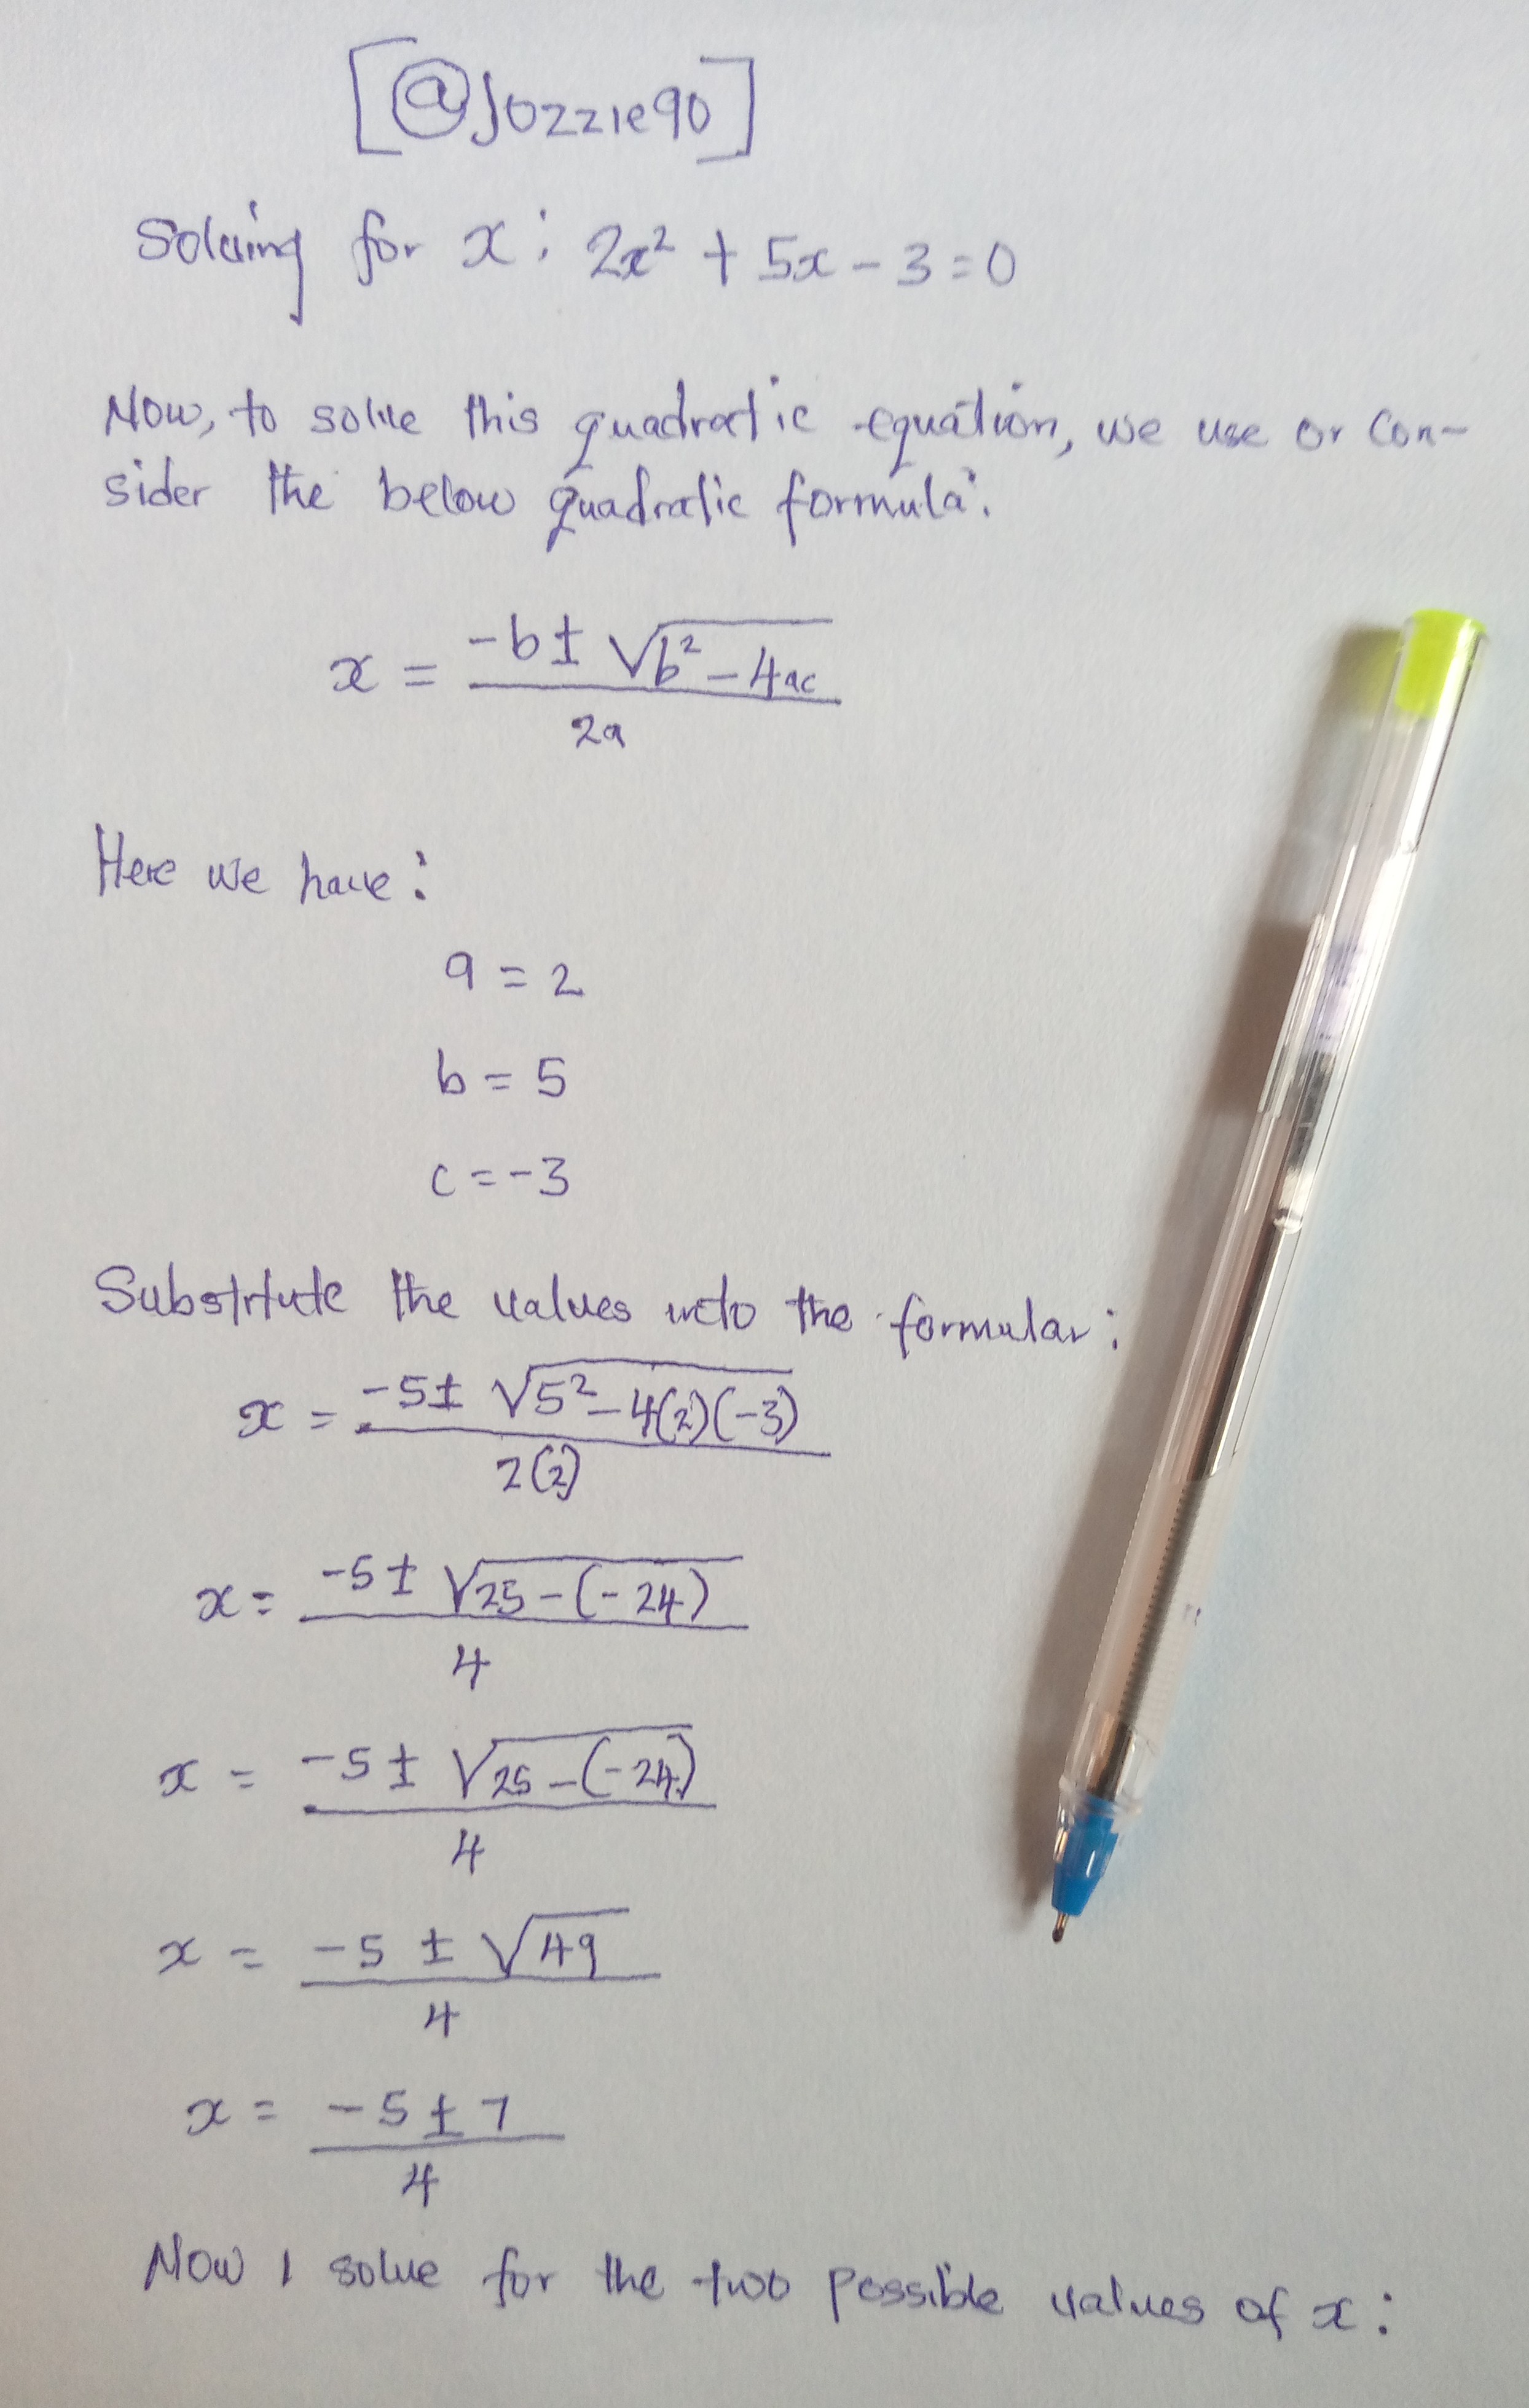 [@Jozzie90]
Solving for x: 2x² + 5x - 3 = 0
Now, to solve this quadratic equation, we use or con-
sider the below quadratic formula:
x = -b ± √b² - 4ac
2a
Here we have:
a = 2
b = 5
c = -3
Substitute the values into the formular:
x = -5 ± √5² - 4(2)(-3)
2(2)
x = -5 ± √25 - (-24)
4
x = -5 ± √25 - (-24)
4
x = -5 ± √49
4
x = -5 ± 7
4
Now I solve for the two possible values of x: